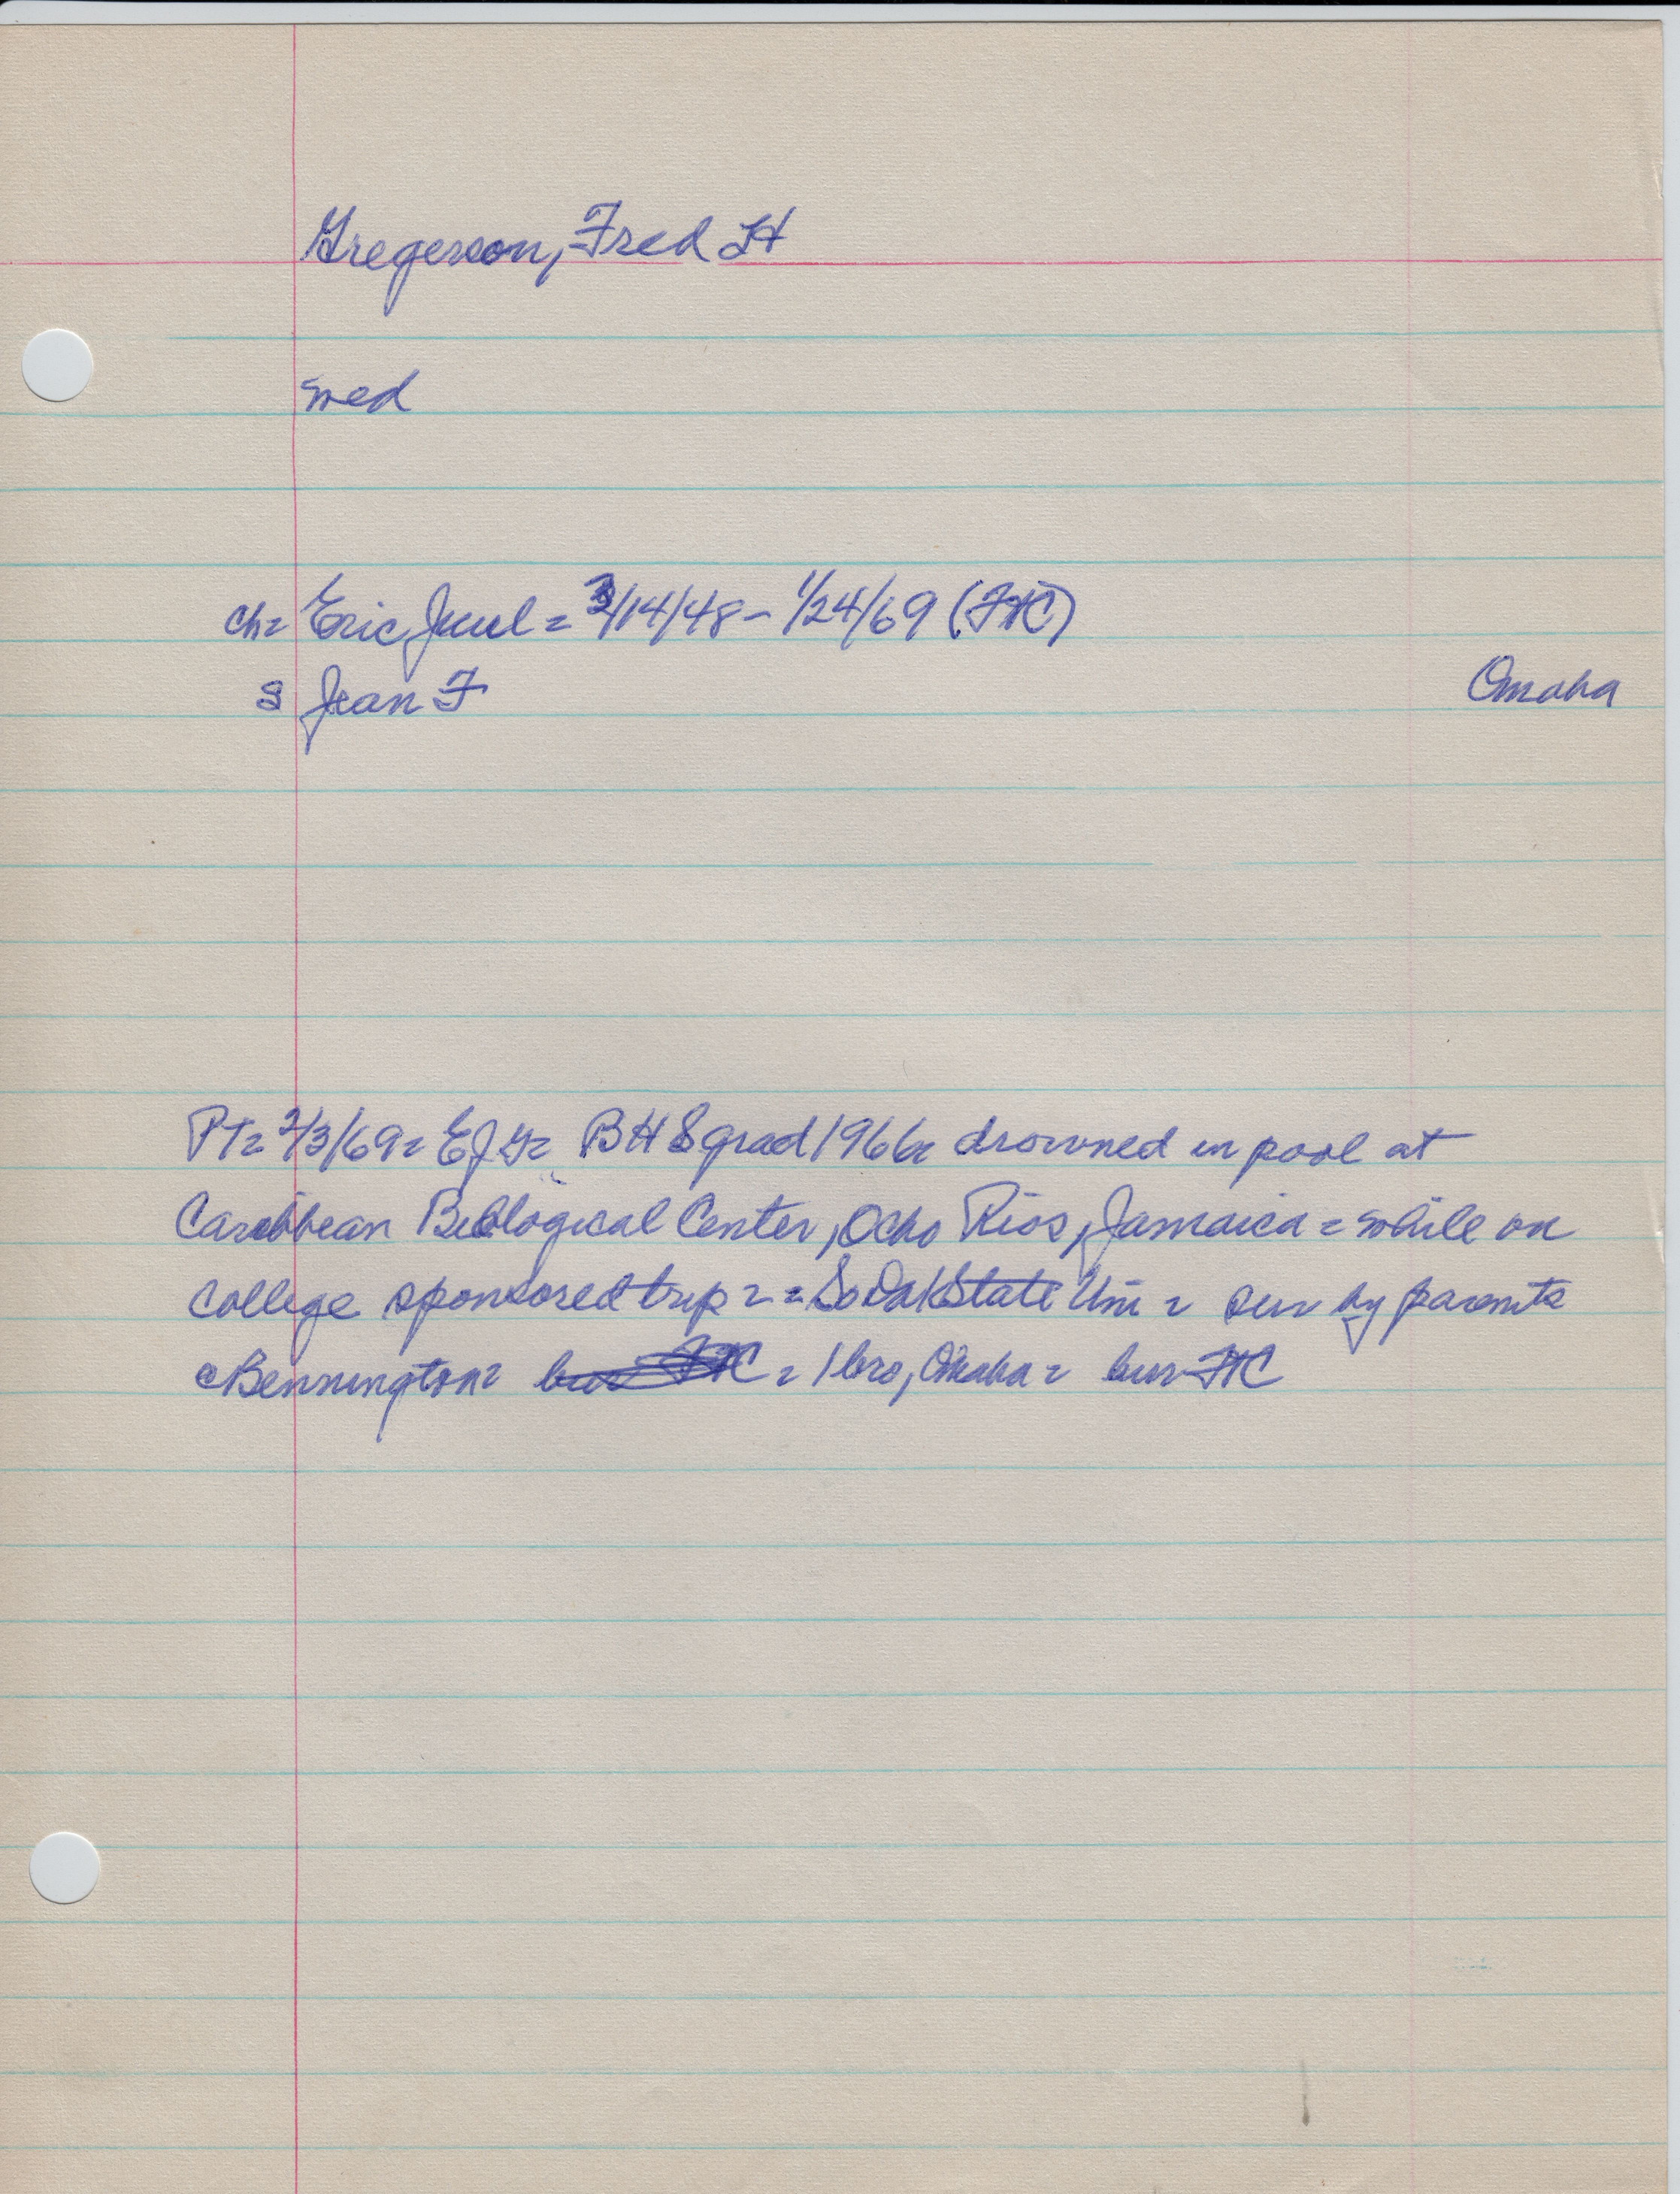 Gregerson, Fred H
wed
ch= Eric Juul = 3/14/48 - 1/24/69 (FHC)
S Jean F
Omaha
PT= 2/3/69= EJG= BHS grad 1966= drowned in pool at
Caribbean Biological Center, Ocho Rios, Jamaica = while on
college sponsored trip = = So Dak State Uni = sur by parents
Bennington= bur FHC = 1 bro, Omaha = bur FHC